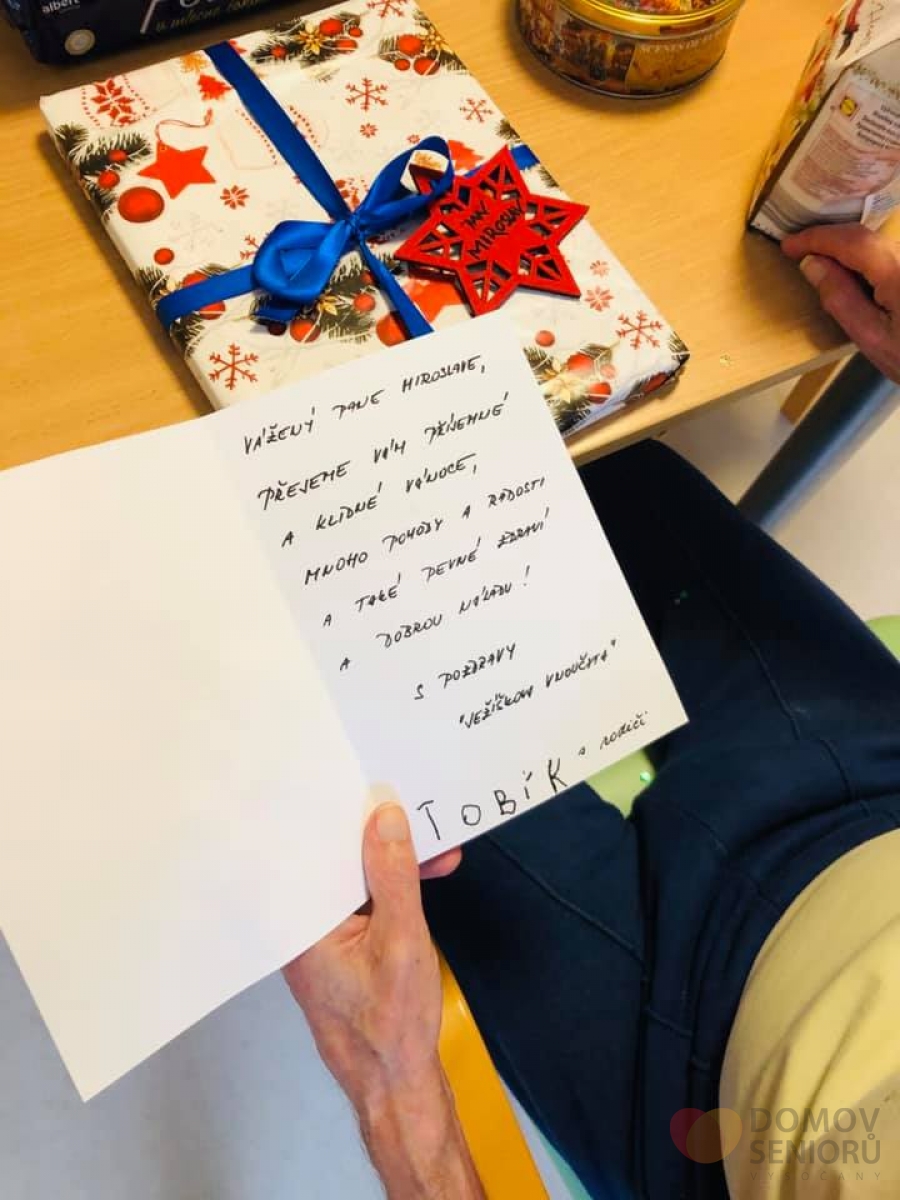 albert
PAN
MIROSLAV
VÁŽENÝ PANE MIROSLAVE,
PŘEJEME VÁM PŘÍJEMNÉ
A KLIDNÉ VÁNOCE,
MNOHO POHODY A RADOSTI
A TAKÉ PEVNÉ ZDRAVÍ
A DOBROU NÁLADU!
S POZDRAVY
"JEŽÍŠKOVA VNOUČATA"
TOBÍK a rodiči
DOMOV
SENIORŮ
VYSOČANY